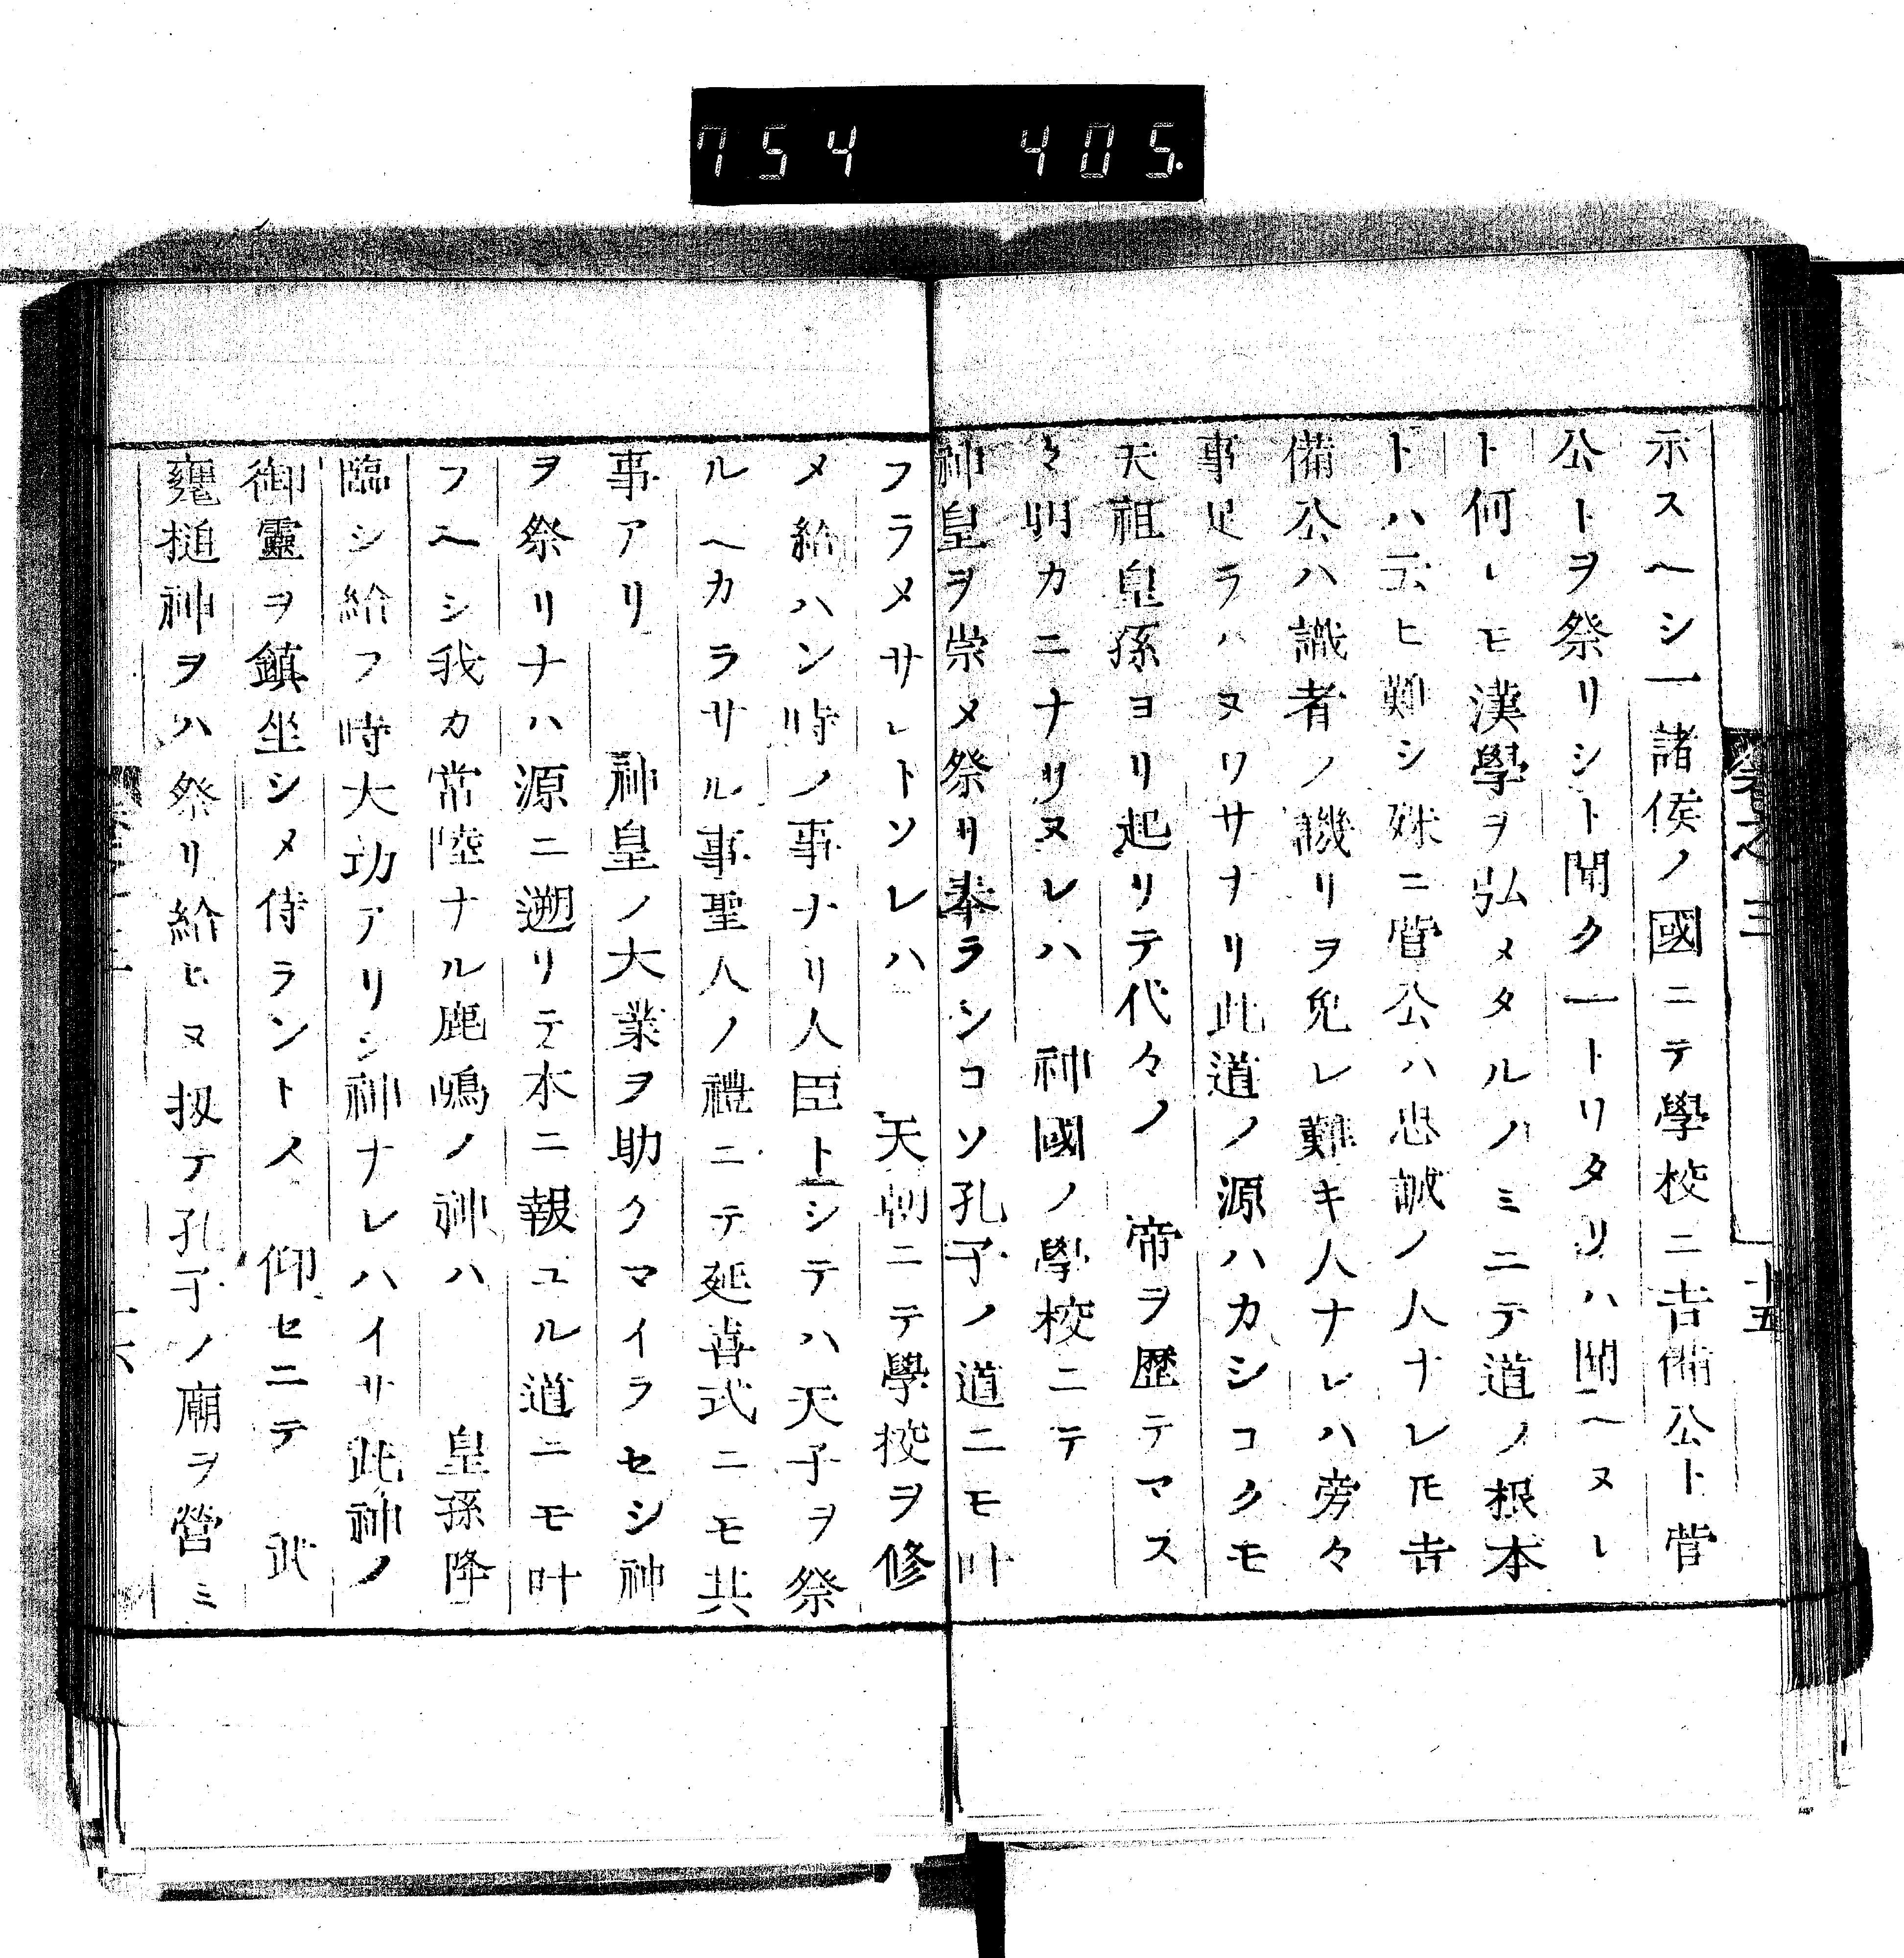 754 405.
卷之三
十五
示スヘシ一諸侯ノ國ニテ學校ニ吉備公ト菅
公トヲ祭リシト聞クートリタリハ聞ヘヌレ
ト何レモ漢學ヲ弘メタルノミニテ道ノ根本
トハ云ヒ難シ殊ニ菅公ハ忠誠ノ人ナレ𪜈吉
備公ハ識者ノ譏リヲ免レ難キ人ナレハ旁々
事足ラハヌワサナリ此道ノ源ハカシコクモ
天祖皇孫ヨリ起リテ代々ノ 帝ヲ歷テマス
〻明カニナリヌレハ 神國ノ學校ニテ
神皇ヲ崇メ祭リ奉ラシコソ孔子ノ道ニモ叶
フラメサレトソレハ 天朝ニテ學挍ヲ修
メ給ハン時ノ事ナリ人臣トシテハ天子ヲ祭
ルヘカラサル事聖人ノ禮ニテ延喜式ニモ共
事アリ 神皇ノ大業ヲ助クマイラセシ神
ヲ祭リナハ源ニ遡リテ本ニ報ユル道ニモ叶
フヘシ我カ常陸ナル鹿嶋ノ神ハ 皇孫降
臨シ給フ時大功アリシ神ナレハイサ此神ノ
御靈ヲ鎮坐シメ侍ラントノ 仰セニテ 武
甕槌神ヲハ祭リ給ヒヌ扨テ孔子ノ廟ヲ營ミ